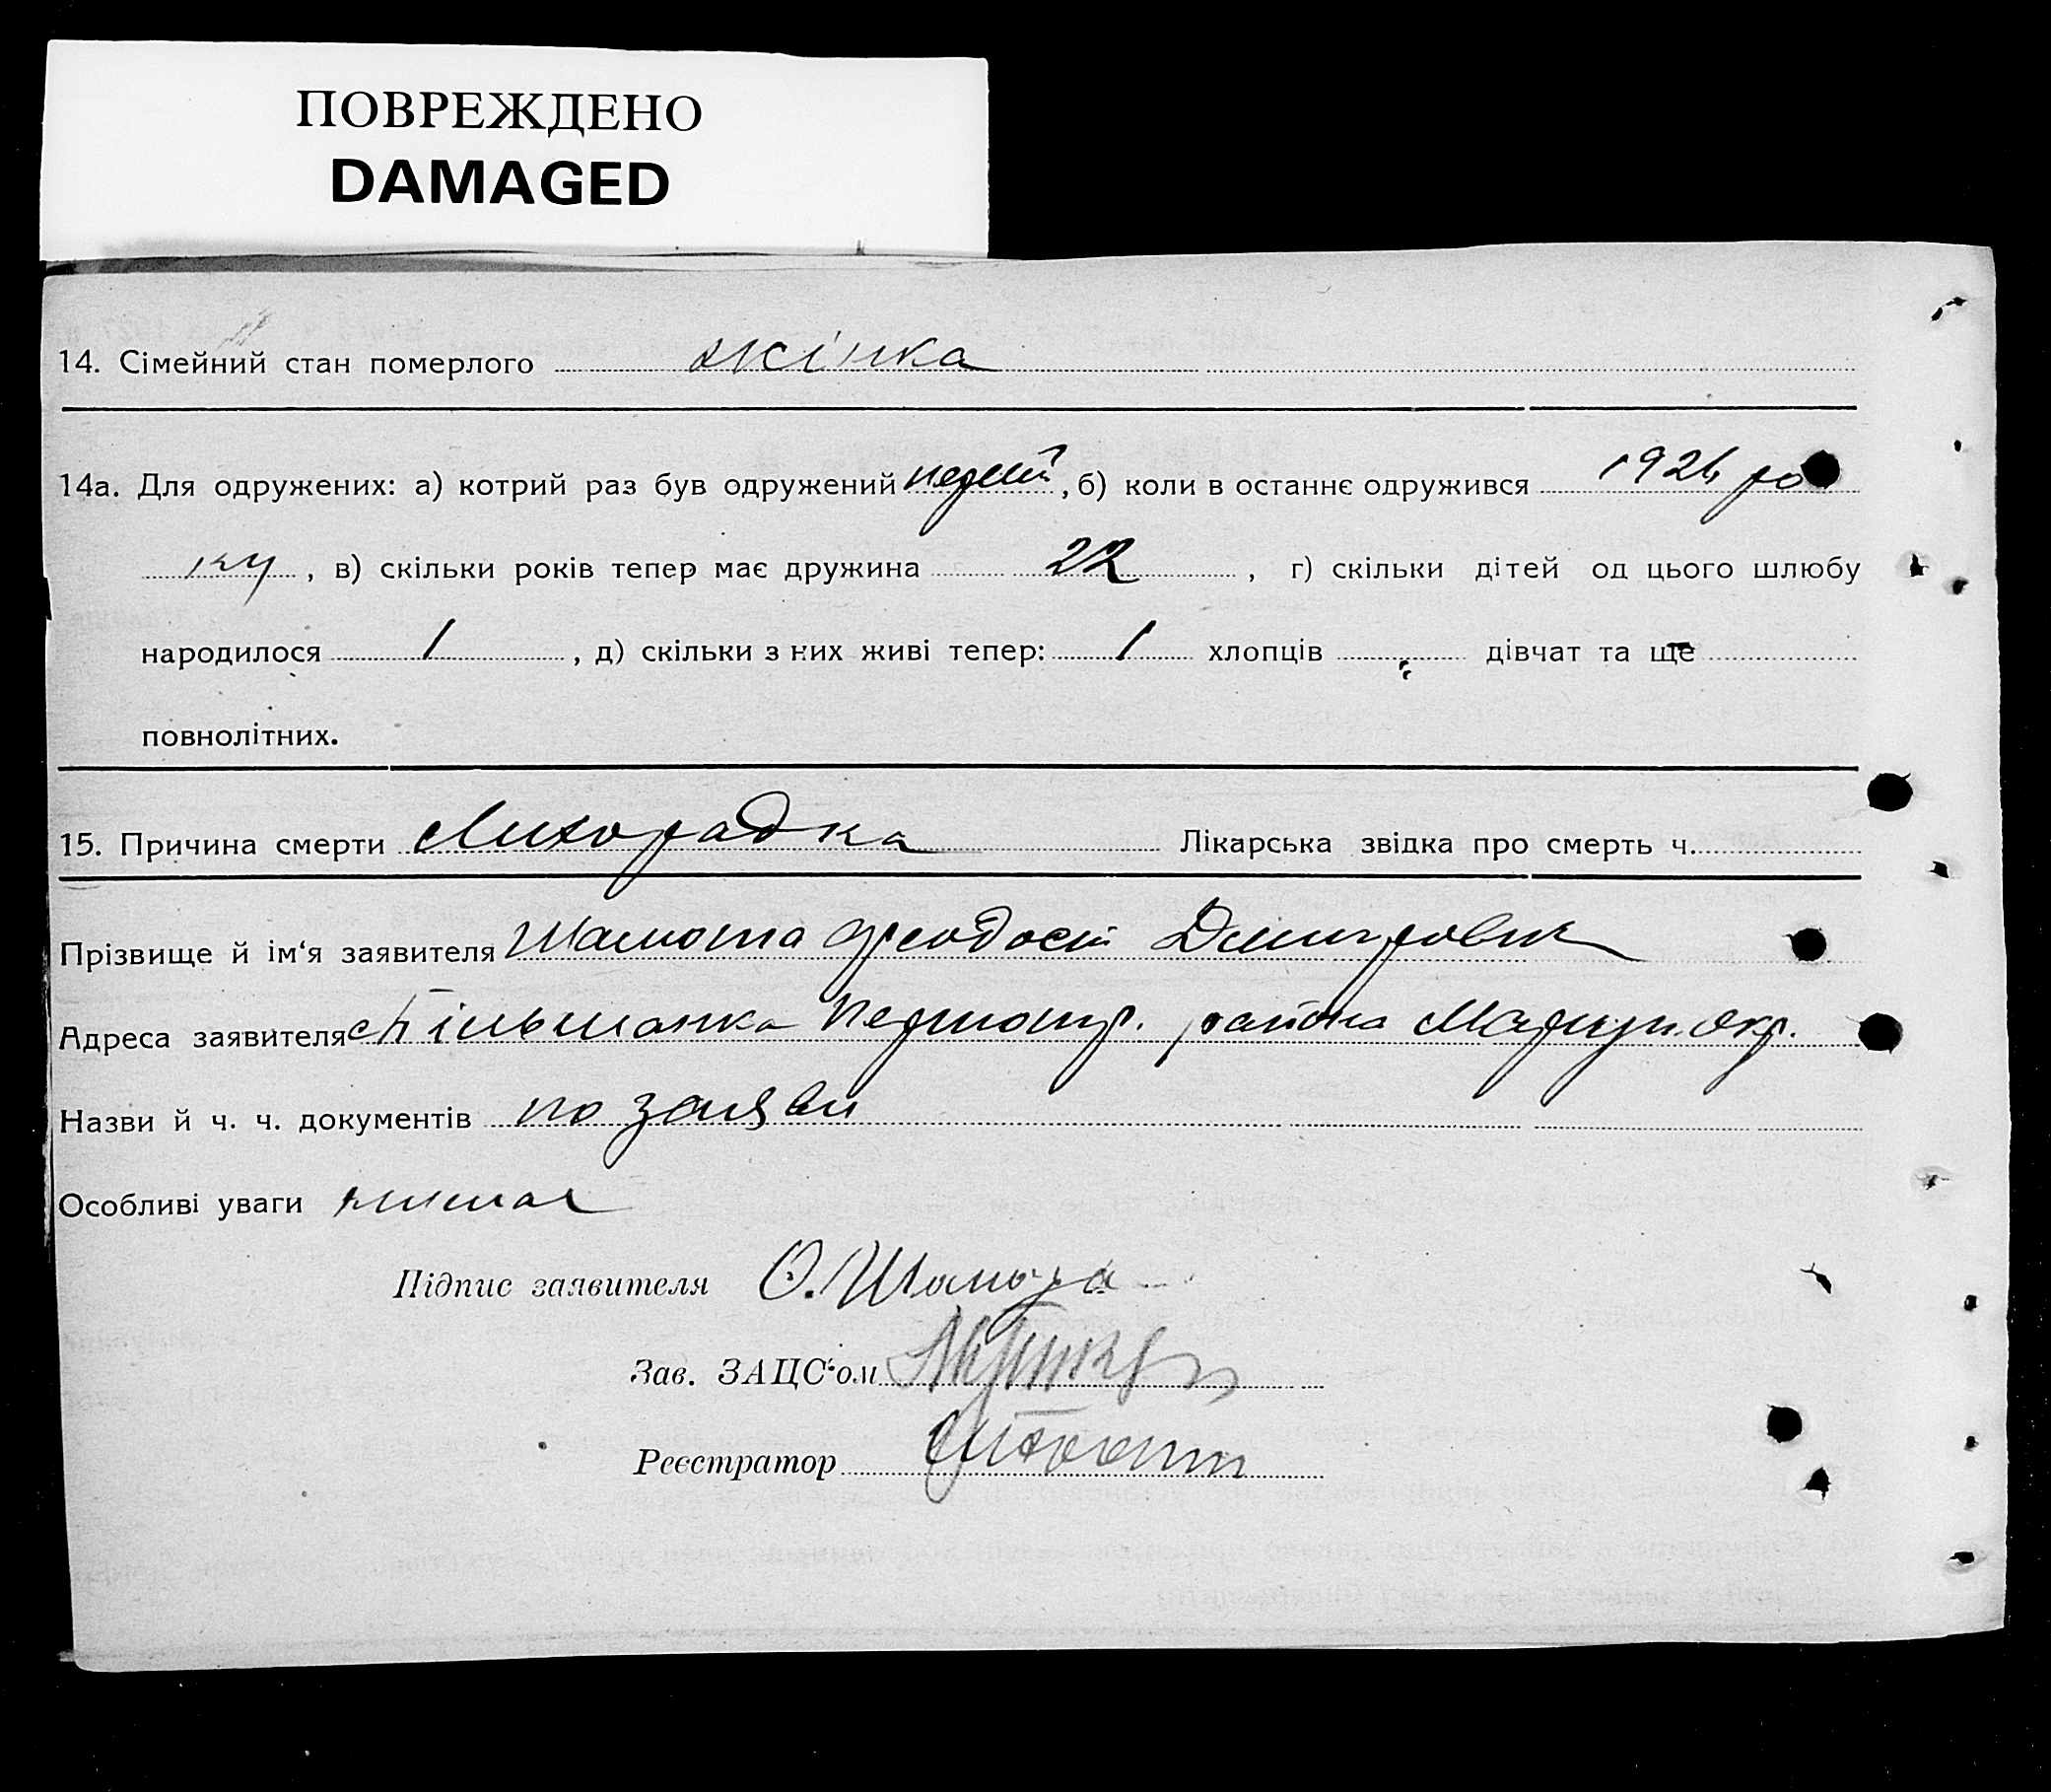 ПОВРЕЖДЕНО
DAMAGED
14. Сімейний стан померлого жінка
14а. Для одружених: а) котрий раз був одружений перший, б) коли в останнє одружився 1924 ро
ку, в) скільки років тепер має дружина 22, г) скільки дітей од цього шлюбу
народилося 1, д) скільки з них живі тепер: 1 хлопців дівчат та ще
повнолітних.
15. Причина смерти Лихорадка Лікарська звідка про смерть ч.
Прізвище й ім‘я заявителя Шамота Феодосій
Адреса заявителя района Маріуп. окр.
Назви й ч. ч. документів по заяви
Особливі уваги
Підпис заявителя Шамота
Зав. ЗАЦС‘ом
Реєстратор